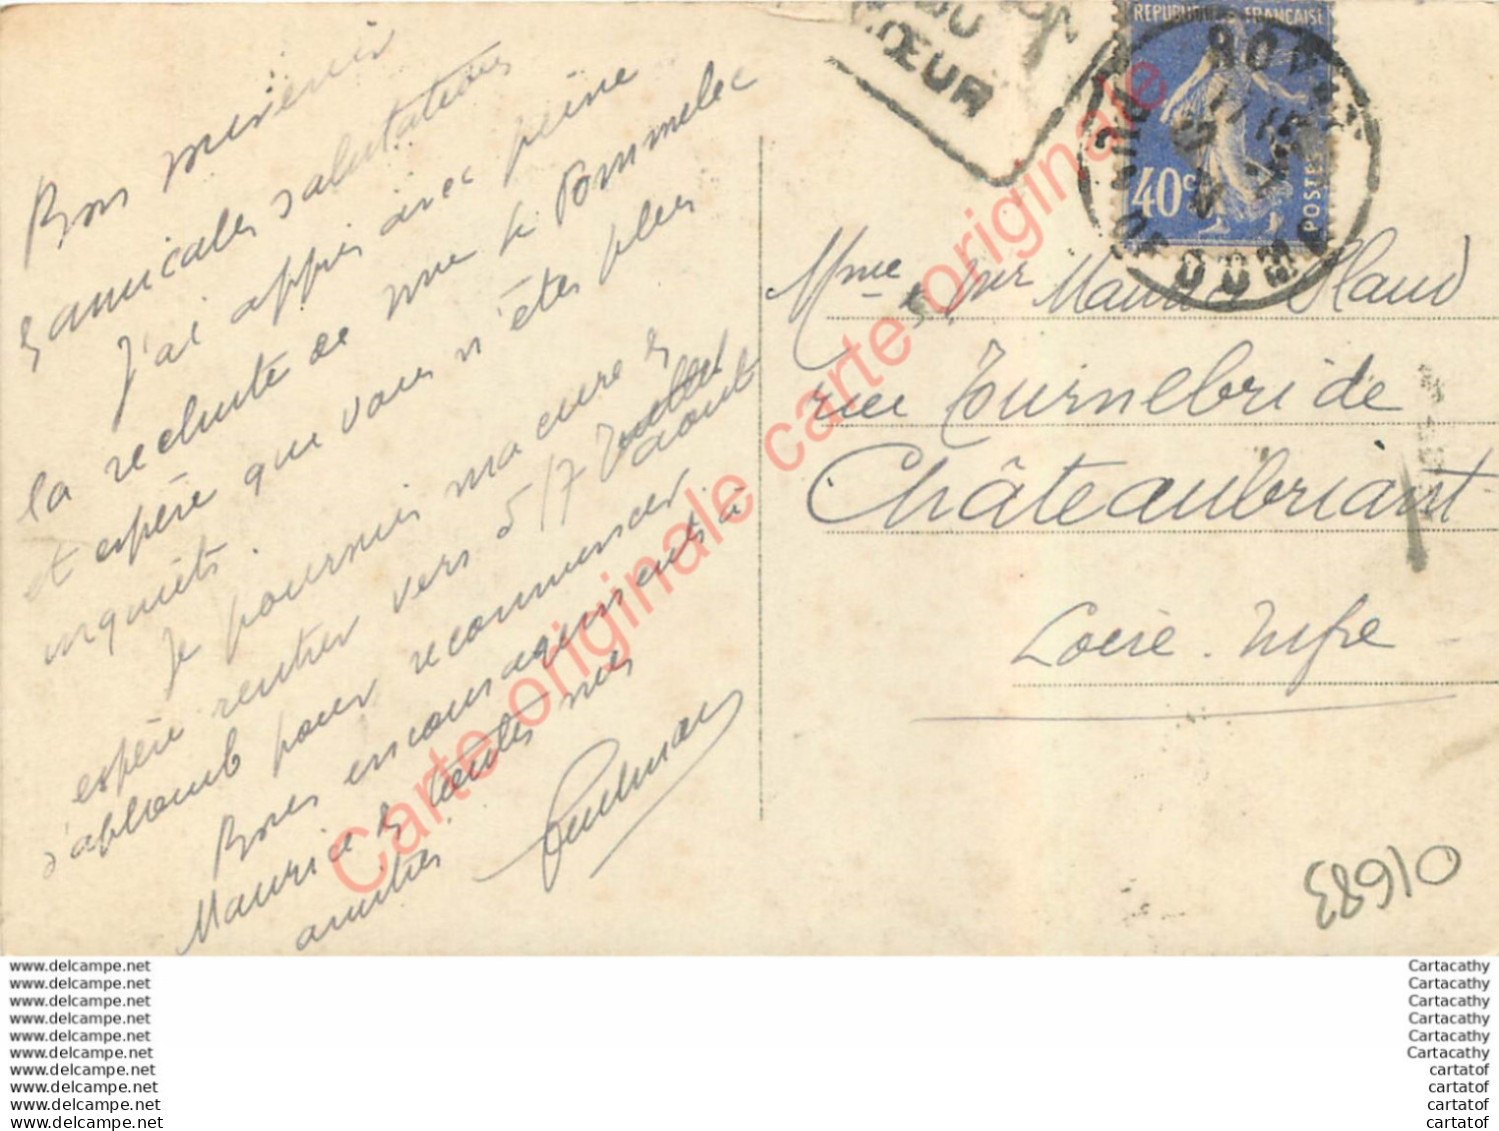 Bon
& amicales salutations
J'ai appris avec peine
la rechute de Mme le Pommelec
et espère que vous n'êtes plus
inquiets.
Je poursuis ma cure &
espère rentrer vers 5/7 août
d'aplomb pour recommencer.
Bons encouragements à
Maurice & toutes mes
amitiés
DU
CŒUR
REPUBLIQUE FRANCAISE
40c
POSTES
ROYAT
PUY DE DOME
Mme Maurice Blaud
rue Tournebride
Châteaubriant
Loire-Infre
01683
Carte originale carte originale
Carte originale carte originale
www.delcampe.net
www.delcampe.net
www.delcampe.net
www.delcampe.net
www.delcampe.net
www.delcampe.net
www.delcampe.net
www.delcampe.net
www.delcampe.net
www.delcampe.net
Cartacathy
Cartacathy
Cartacathy
Cartacathy
Cartacathy
Cartacathy
cartatof
cartatof
cartatof
cartatof